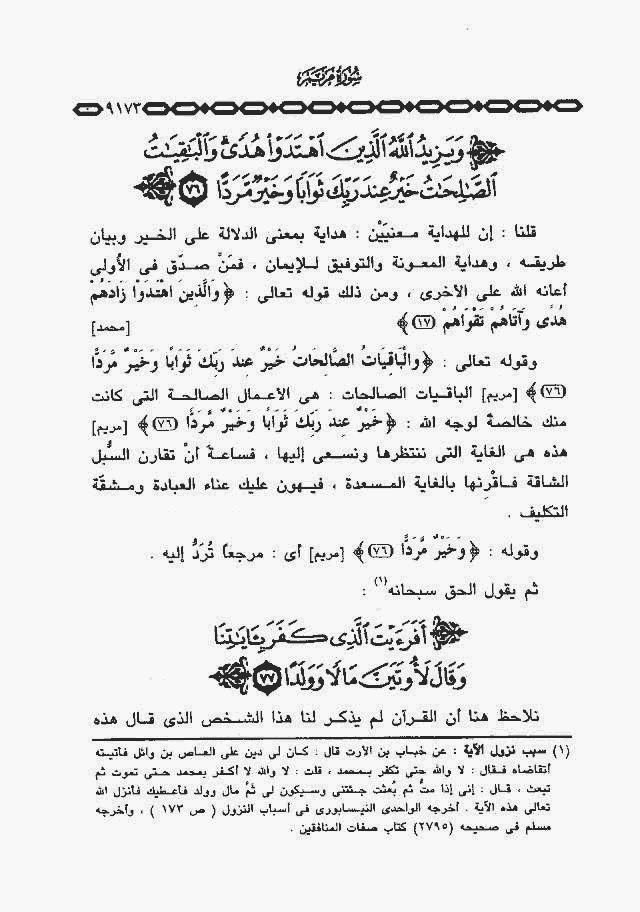 سُورَةُ مَرْيَم
٩١٧٣
وَيَزِيدُ ٱللَّهُ ٱلَّذِينَ ٱهْتَدَوْا۟ هُدًى ۗ وَٱلْبَٰقِيَٰتُ
ٱلصَّٰلِحَٰتُ خَيْرٌ عِندَ رَبِّكَ ثَوَابًا وَخَيْرٌ مَّرَدًّا ٧٦
قلنا : إن للهداية معنيَيْن : هداية بمعنى الدلالة على الخير وبيان
طريقه ، وهداية المعونة والتوفيق للإيمان ، فمَنْ صدّق فى الأولى
أعانه الله على الأخرى ، ومن ذلك قوله تعالى : ﴿ وَالَّذِينَ اهْتَدَوْا زَادَهُمْ
هُدًى وَآتَاهُمْ تَقْوَاهُمْ (١٧) ﴾ [محمد]
وقوله تعالى : ﴿ والْبَاقِيَاتُ الصَّالِحَاتُ خَيْرٌ عِندَ رَبِّكَ ثَوَابًا وَخَيْرٌ مَّرَدًّا
(٧٦) ﴾ [مريم] الباقيات الصالحات : هى الأعمال الصالحة التى كانت
منك خالصةً لوجه الله : ﴿ خَيْرٌ عِندَ رَبِّكَ ثَوَابًا وَخَيْرٌ مَّرَدًّا (٧٦) ﴾ [مريم]
هذه هى الغاية التى ننتظرها ونسعى إليها ، فساعةَ أنْ تقارن السُّبل
الشاقة فاقْرِنها بالغاية المسعدة ، فيهون عليك عناء العبادة ومشقّة
التكليف .
وقوله : ﴿ وَخَيْرٌ مَّرَدًّا (٧٦) ﴾ [مريم] أى : مرجعاً تُرَدُّ إليه .
ثم يقول الحق سبحانه(١) :
أَفَرَءَيْتَ ٱلَّذِى كَفَرَ بِـَٔايَٰتِنَا
وَقَالَ لَأُوتَيَنَّ مَالًا وَوَلَدًا ٧٧
نلاحظ هنا أن القرآن لم يذكر لنا هذا الشخص الذى قال هذه
(١) سبب نزول الآية : عن خباب بن الأرت قال : كان لى دين على العاص بن وائل فأتيته
أتقاضاه فقال : لا والله حتى تكفر بمحمد ، قلت : لا والله لا أكفر بمحمد حتى تموت ثم
تبعث ، قال : إنى إذا متُّ ثم بُعثت جئتنى وسيكون لى ثَمَّ مال وولد فأعطيك فأنزل الله
تعالى هذه الآية . أخرجه الواحدى النيسابورى فى أسباب النزول ( ص ١٧٣ ) ، وأخرجه
مسلم فى صحيحه (٢٧٩٥) كتاب صفات المنافقين .